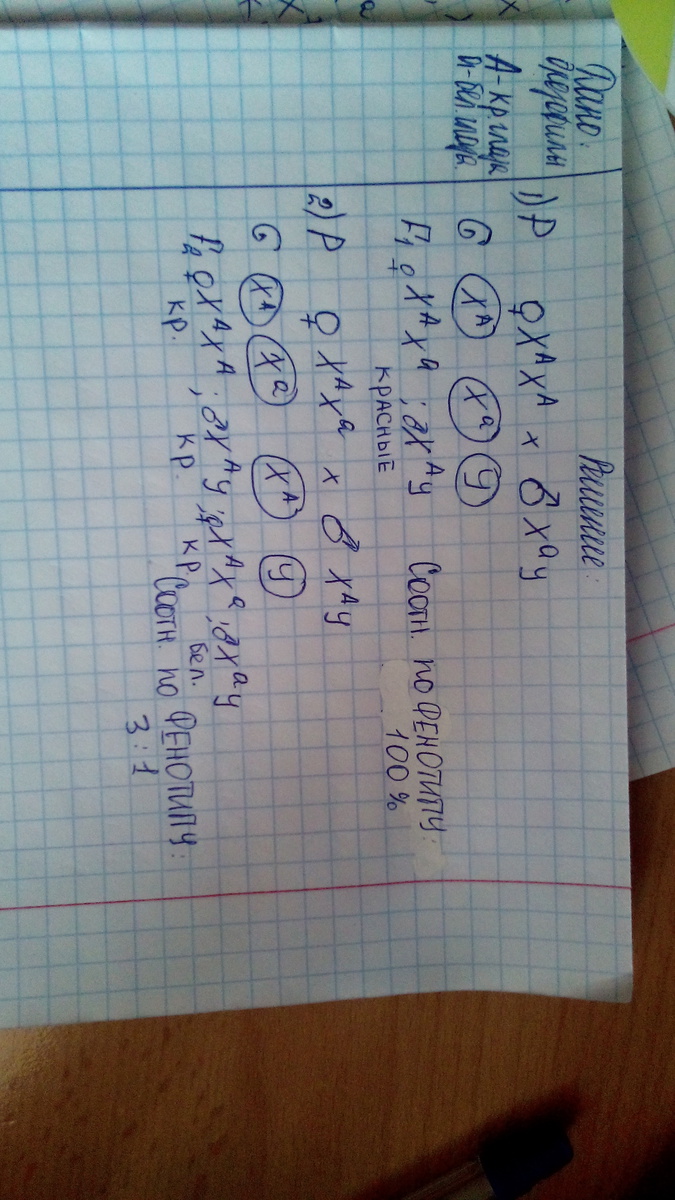 Дано:
A - кр. глаза
a - бел. глаза
Решение:
1) P ♀ XᴬXᴬ x ♂ Xᵃy
G Xᴬ Xᵃ y
F₁ ♀ XᴬXᵃ ; ♂XᴬY Соотн. по ФЕНОТИПУ:
КРАСНЫЕ 100%
2) P ♀ XᴬXᵃ x ♂ Xᴬy
G Xᴬ Xᵃ Xᴬ y
F₂ ♀XᴬXᴬ ; ♂Xᴬy ; ♀XᴬXᵃ ; ♂Xᵃy
кр. кр. кр. бел.
Соотн. по ФЕНОТИПУ:
3 : 1